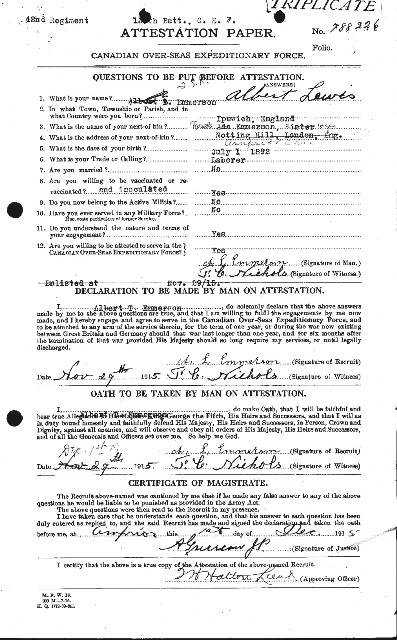 TRIPLICATE
42nd Regiment Batt., C. E. F.
No. 788226
ATTESTATION PAPER.
Folio.
CANADIAN OVER-SEAS EXPEDITIONARY FORCE.
QUESTIONS TO BE PUT BEFORE ATTESTATION.
(ANSWERS)
Albert Lewis
1. What is your name? Emmerson
2. In what Town, Township or Parish, and in
what Country were you born? Ipswich, England
3. What is the name of your next-of-kin? Ada Emmerson, Sister
4. What is the address of your next-of-kin? Notting Hill, London, Eng.
Arnprior
5. What is the date of your birth? July 1 1892
6. What is your Trade or Calling? Laborer
7. Are you married? No
8. Are you willing to be vaccinated or re-
vaccinated? and inoculated Yes
9. Do you now belong to the Active Militia? No
10. Have you ever served in any Military Force? No
If so, state particulars of former Service.
11. Do you understand the nature and terms of
your engagement? Yes
12. Are you willing to be attested to serve in the
CANADIAN OVER-SEAS EXPEDITIONARY FORCE? Yes
A. L. Emmerson (Signature of Man.)
T. C. Nichols (Signature of Witness)
Enlisted at Nov. 29/15.
DECLARATION TO BE MADE BY MAN ON ATTESTATION.
I, Albert T. Emmerson, do solemnly declare that the above answers
made by me to the above questions are true, and that I am willing to fulfil the engagements by me now
made, and I hereby engage and agree to serve in the Canadian Over-Seas Expeditionary Force, and to
be attached to any arm of the service therein, for the term of one year, or during the war now existing
between Great Britain and Germany should that war last longer than one year, and for six months after
the termination of that war provided His Majesty should so long require my services, or until legally
discharged.
A. L. Emmerson (Signature of Recruit)
Date Nov 29th 1915 T. C. Nichols (Signature of Witness)
OATH TO BE TAKEN BY MAN ON ATTESTATION.
I, do make Oath, that I will be faithful and
bear true Allegiance to His Majesty King George the Fifth, His Heirs and Successors, and that I will as
in duty bound honestly and faithfully defend His Majesty, His Heirs and Successors, in Person, Crown and
Dignity, against all enemies, and will observe and obey all orders of His Majesty, His Heirs and Successors,
and of all the Generals and Officers set over me. So help me God.
Dec 1st
A. L. Emmerson (Signature of Recruit)
Date Nov 29th 1915 T. C. Nichols (Signature of Witness)
CERTIFICATE OF MAGISTRATE.
The Recruit above-named was cautioned by me that if he made any false answer to any of the above
questions he would be liable to be punished as provided in the Army Act.
The above questions were then read to the Recruit in my presence.
I have taken care that he understands each question, and that his answer to each question has been
duly entered as replied to, and the said Recruit has made and signed the declaration and taken the oath
before me, at Arnprior this 1st day of Dec 1915
A Grierson JP (Signature of Justice)
I certify that the above is a true copy of the Attestation of the above-named Recruit.
Hatton Lieut (Approving Officer)
M. F. W. 23.